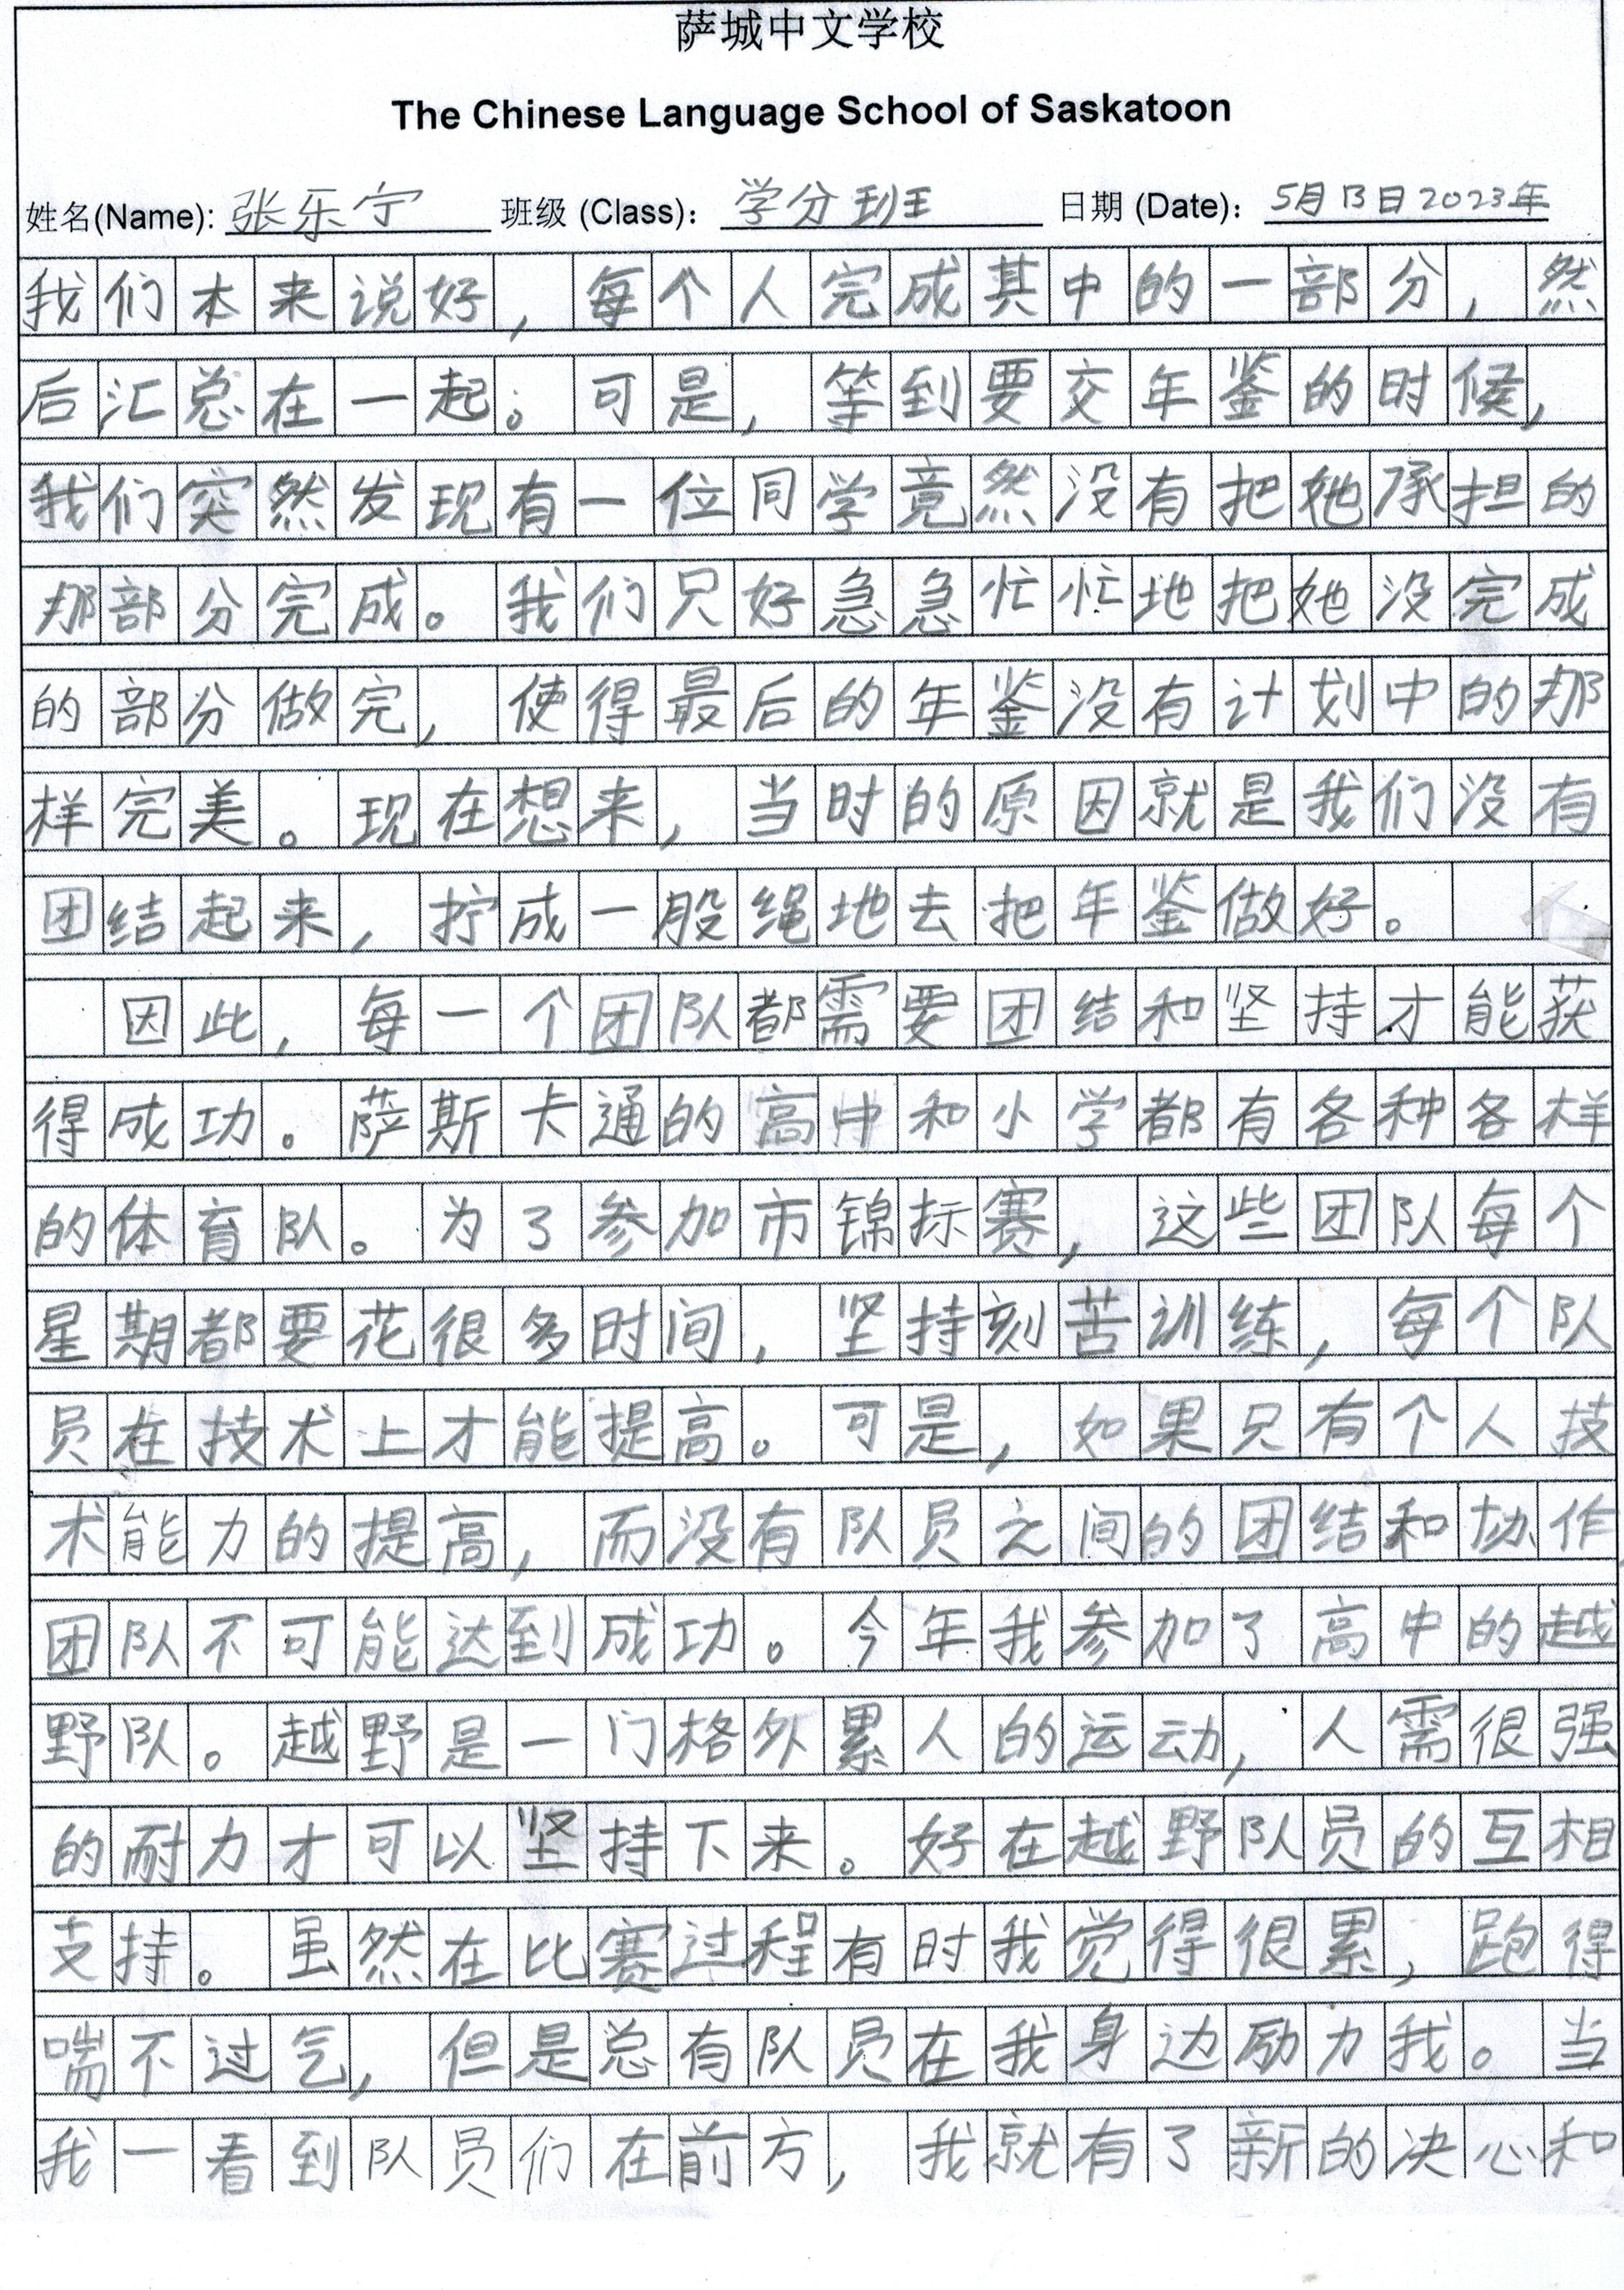 萨城中文学校
The Chinese Language School of Saskatoon
姓名(Name): 张乐宁 班级 (Class): 学分班 日期 (Date): 5月13日2023年
我们本来说好，每个人完成其中的一部分，然
后汇总在一起。可是，等到要交年鉴的时候，
我们突然发现有一位同学竟然没有把她承担的
那部分完成。我们只好急急忙忙地把她没完成
的部分做完，使得最后的年鉴没有计划中的那
样完美。现在想来，当时的原因就是我们没有
团结起来，拧成一股绳地去把年鉴做好。
因此，每一个团队都需要团结和坚持才能获
得成功。萨斯卡通的高中和小学都有各种各样
的体育队。为了参加市锦标赛，这些团队每个
星期都要花很多时间，坚持刻苦训练，每个队
员在技术上才能提高。可是，如果只有个人技
术能力的提高，而没有队员之间的团结和协作
团队不可能达到成功。今年我参加了高中的越
野队。越野是一门格外累人的运动，人需很强
的耐力才可以坚持下来。好在越野队员的互相
支持。虽然在比赛过程有时我觉得很累，跑得
喘不过气，但是总有队员在我身边励力我。当
我一看到队员们在前方，我就有了新的决心和